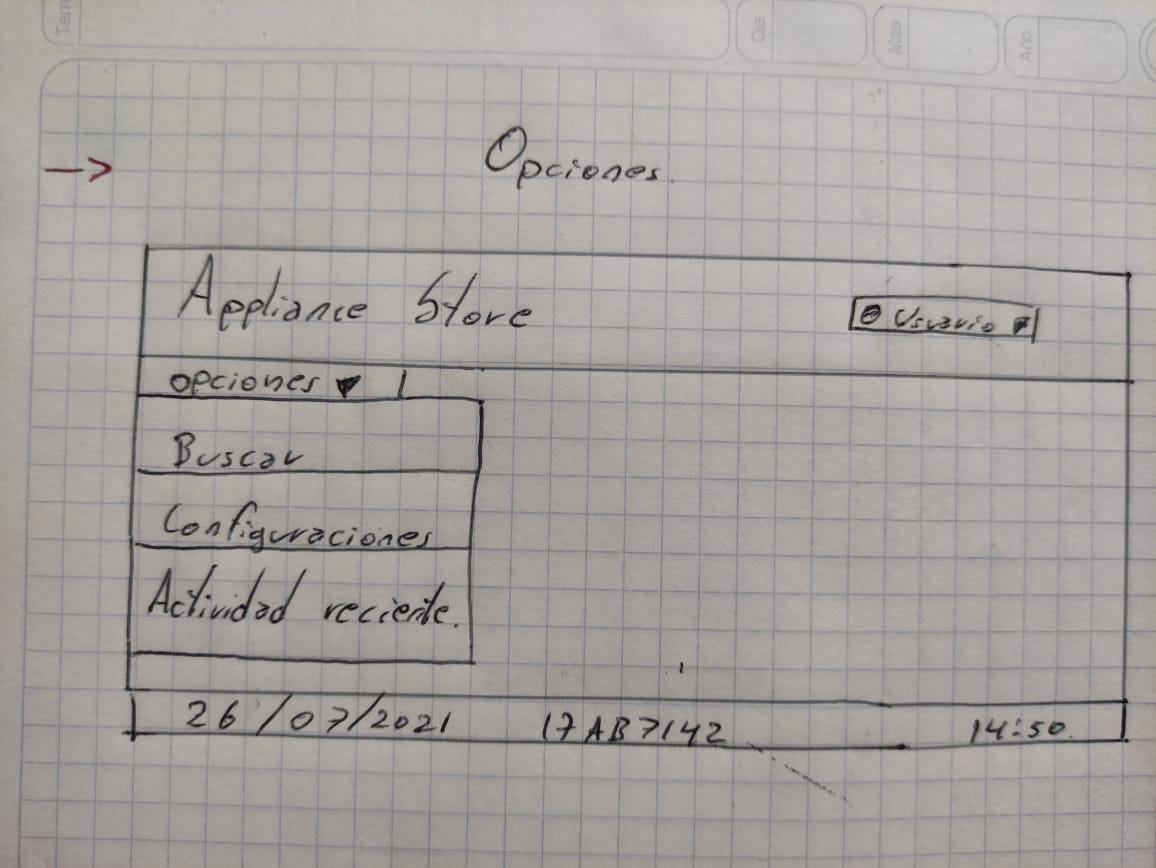 Tem
Dia
Mes
Año
Opciones.
Appliance Store
Usuario
opciones
Buscar
Configuraciones
Actividad reciente.
26/07/2021 17AB7142 14:50.